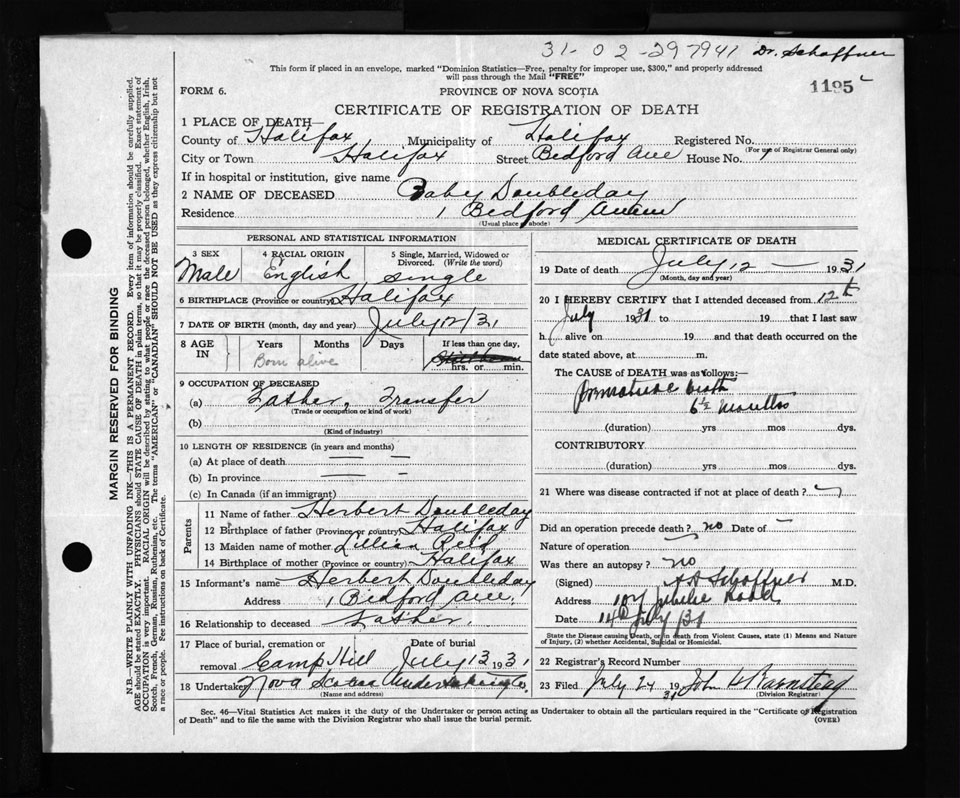 31-02-297941 Dr. Schaffner
This form if placed in an envelope, marked "Dominion Statistics—Free, penalty for improper use, $300," and properly addressed
will pass through the Mail "FREE"
1195
FORM 6.
PROVINCE OF NOVA SCOTIA
CERTIFICATE OF REGISTRATION OF DEATH
1 PLACE OF DEATH—
County of Halifax Municipality of Halifax Registered No.
(For use of Registrar General only)
City or Town Halifax Street Bedford Ave House No. 1
If in hospital or institution, give name
2 NAME OF DECEASED Baby Doubleday
Residence 1 Bedford Avenue
(Usual place of abode)
PERSONAL AND STATISTICAL INFORMATION
3 SEX 4 RACIAL ORIGIN 5 Single, Married, Widowed or
Divorced (Write the word)
Male English single
6 BIRTHPLACE (Province or country) Halifax
7 DATE OF BIRTH (month, day and year) July 12/31
8 AGE IN Years Months Days If less than one day,
Born alive hrs. or min.
9 OCCUPATION OF DECEASED
(a) Father, Transfer
(Trade or occupation or kind of work)
(b)
(Kind of industry)
10 LENGTH OF RESIDENCE (in years and months)
(a) At place of death — —
(b) In province — —
(c) In Canada (if an immigrant)
Parents
11 Name of father Herbert Doubleday
12 Birthplace of father (Province or country) Halifax
13 Maiden name of mother Lillian Reid
14 Birthplace of mother (Province or country) Halifax
15 Informant's name Herbert Doubleday
Address 1 Bedford Ave.
16 Relationship to deceased Father.
17 Place of burial, cremation or Date of burial
removal Camp Hill July 13 1931
18 Undertaker Nova Scotia Undertaking Co.
(Name and address)
MEDICAL CERTIFICATE OF DEATH
19 Date of death July 12 — 1931
(Month, day and year)
20 I HEREBY CERTIFY that I attended deceased from 12th
July 1931 to 19 that I last saw
h alive on 19 and that death occurred on the
date stated above, at m.
The CAUSE OF DEATH was as follows:—
premature birth
6½ months
(duration) yrs mos dys.
CONTRIBUTORY
(duration) yrs mos dys.
21 Where was disease contracted if not at place of death?
Did an operation precede death? no Date of —
Nature of operation
Was there an autopsy? no
(Signed) Schaffner M.D.
Address 107 Jubilee Road,
Date 14th July/31
State the Disease causing Death, or in death from Violent Causes, state (1) Means and Nature
of Injury, (2) whether Accidental, Suicidal or Homicidal.
22 Registrar's Record Number
23 Filed July 24 1931 John H Barnstead
(Division Registrar)
Sec. 46—Vital Statistics Act makes it the duty of the Undertaker or person acting as Undertaker to obtain all the particulars required in the "Certificate of Registration
of Death" and to file the same with the Division Registrar who shall issue the burial permit.
(OVER)
MARGIN RESERVED FOR BINDING
N.B.—WRITE PLAINLY WITH UNFADING INK—THIS IS A PERMANENT RECORD. Every item of information should be carefully supplied.
AGE should be stated EXACTLY. PHYSICIANS should STATE CAUSE OF DEATH in plain terms, so that it may be properly classified. Exact statement of
OCCUPATION is very important. RACIAL ORIGIN will be described by stating to what people or race the deceased person belonged, whether English, Irish,
Scotch, French, German, Russian, Ruthenian, etc. The terms "AMERICAN" or "CANADIAN" SHOULD NOT BE USED as they express citizenship but not
a race or people. See instructions on back of Certificate.